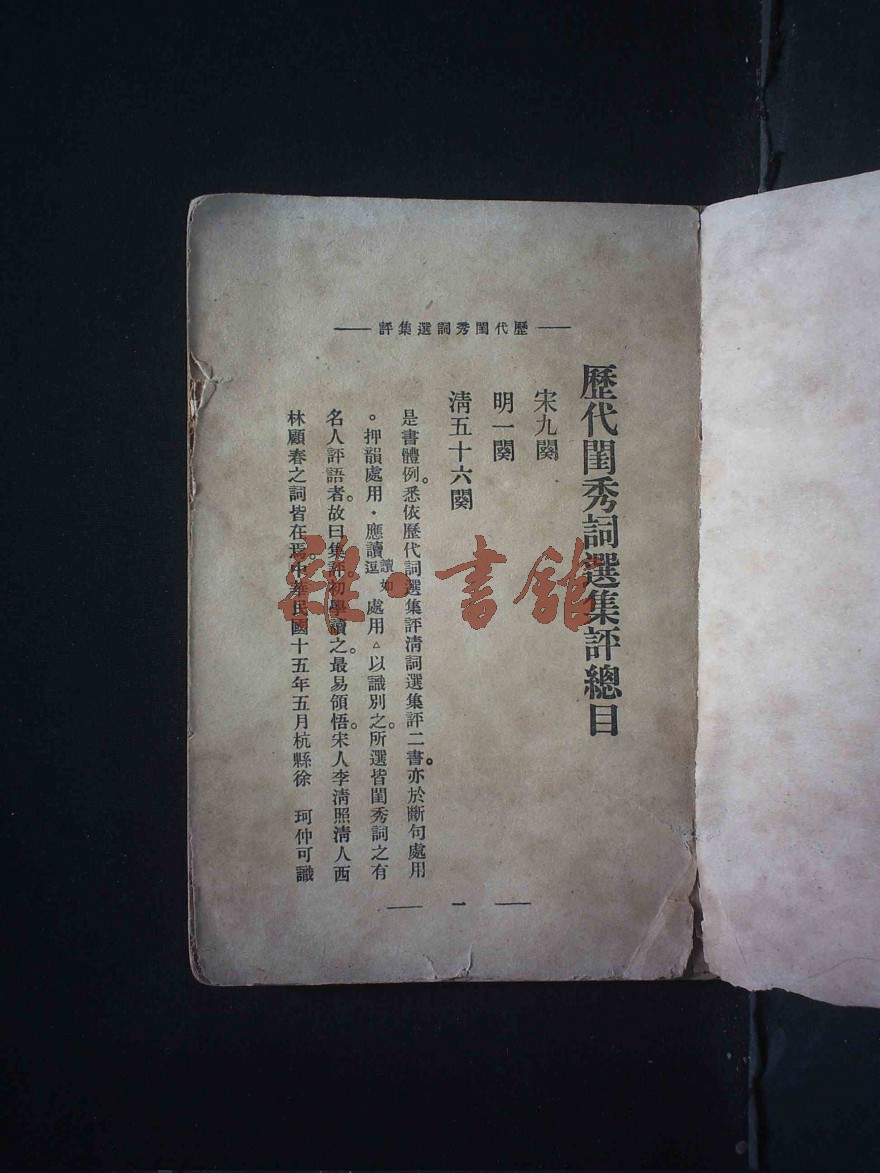 歷代閨秀詞選集評
歷代閨秀詞選集評總目
宋九闋
明一闋
清五十六闋
是書體例。悉依歷代詞選集評清詞選集評二書。亦於斷句處用
。押韻處用·應讀讀如逗處用△以識別之。所選皆閨秀詞之有
名人評語者。故曰集評。初學讀之。最易領悟。宋人李清照清人西
林顧春之詞皆在焉。中華民國十五年五月杭縣徐 珂仲可識
一
雜·書館